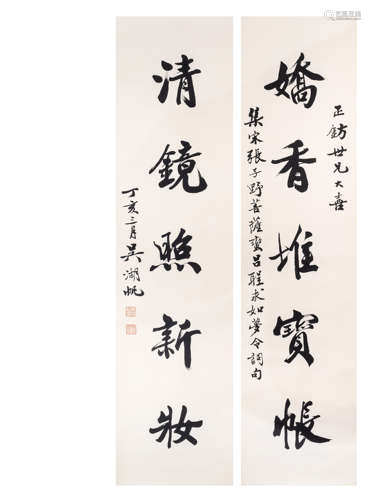 正鈁世兄大喜
嬌香堆寶帳
集宋張子野菩薩蠻呂聖求如夢令詞句
清鏡照新妝
丁亥三月吳湖帆